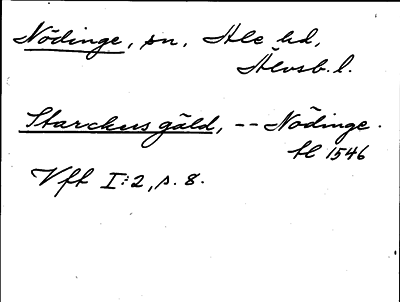 Nödinge, sn, Ale hd,
Älvsb. l.
Starckus gäld, -- Nödinge.
tl 1546
Vft I:2, s. 8.